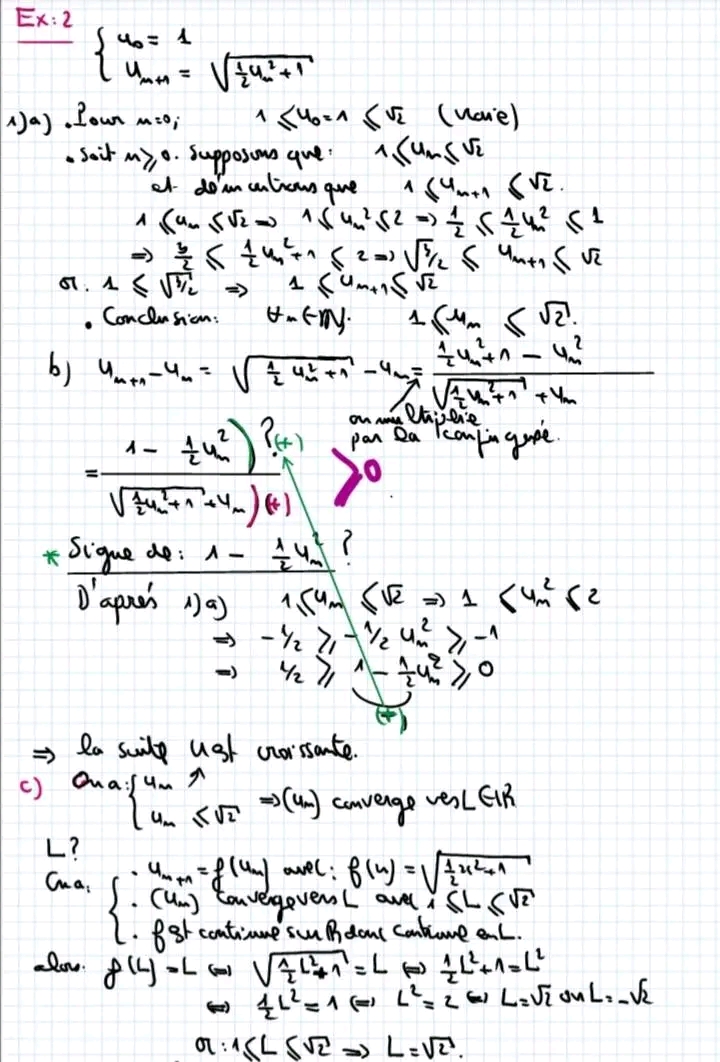 Ex: 2
{ u₀ = 1
{ uₙ₊₁ = √(½uₙ² + 1)
1)a) . Pour n=0; 1 ≤ u₀ = 1 ≤ √2 (vraie)
. Soit n ≥ 0. Supposons que: 1 ≤ uₙ ≤ √2
et démontrons que 1 ≤ uₙ₊₁ ≤ √2.
1 ≤ uₙ ≤ √2 ⇒ 1 ≤ uₙ² ≤ 2 ⇒ ½ ≤ ½uₙ² ≤ 1
⇒ 3/2 ≤ ½uₙ² + 1 ≤ 2 ⇒ √(3/2) ≤ uₙ₊₁ ≤ √2
or: 1 ≤ √(3/2) ⇒ 1 ≤ uₙ₊₁ ≤ √2
. Conclusion: ∀n∈ℕ: 1 ≤ uₙ ≤ √2.
b) uₙ₊₁ - uₙ = √(½uₙ² + 1) - uₙ = (½uₙ² + 1 - uₙ²) / (√(½uₙ² + 1) + uₙ)
on multiplie
par la conjuguée.
= (1 - ½uₙ²) / (√(½uₙ² + 1) + uₙ) ? (+) (+) ≥ 0
* Signe de: 1 - ½uₙ² ?
D'après 1)a) 1 ≤ uₙ ≤ √2 ⇒ 1 ≤ uₙ² ≤ 2
⇒ -1/2 ≥ -1/2 uₙ² ≥ -1
⇒ 1/2 ≥ 1 - ½uₙ² ≥ 0
(+)
⇒ la suite U est croissante.
c) On a: { uₙ ↗
{ uₙ ≤ √2 ⇒ (uₙ) converge vers L ∈ ℝ
L?
On a: { . uₙ₊₁ = f(uₙ) avec: f(x) = √(½x² + 1)
{ . (uₙ) converge vers L avec 1 ≤ L ≤ √2
{ . f est continue sur ℝ donc continue en L.
alors: f(L) = L ⇔ √(½L² + 1) = L ⇔ ½L² + 1 = L²
⇔ ½L² = 1 ⇔ L² = 2 ⇔ L = √2 ou L = -√2
or: 1 ≤ L ≤ √2 ⇒ L = √2.